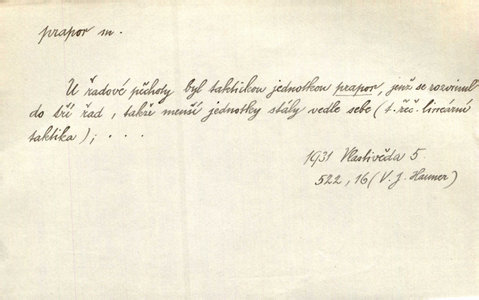 prapor m.
U řadové pěchoty byl taktickou jednotkou prapor, jenž se rozvinul
do tří řad, takže menší jednotky stály vedle sebe (t. řeč. lineární
taktika); . . .
1931 Vlastivěda 5
522, 16 (V. J. Hauner)